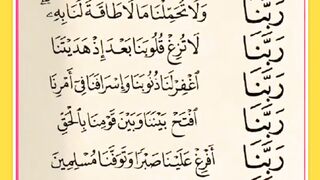 رَبَّنَا وَلَا تُحَمِّلْنَا مَا لَا طَاقَةَ لَنَا بِهِ
رَبَّنَا لَا تُزِغْ قُلُوبَنَا بَعْدَ إِذْ هَدَيْتَنَا
رَبَّنَا اغْفِرْ لَنَا ذُنُوبَنَا وَإِسْرَافَنَا فِي أَمْرِنَا
رَبَّنَا افْتَحْ بَيْنَنَا وَبَيْنَ قَوْمِنَا بِالْحَقِّ
رَبَّنَا أَفْرِغْ عَلَيْنَا صَبْرًا وَتَوَفَّنَا مُسْلِمِينَ